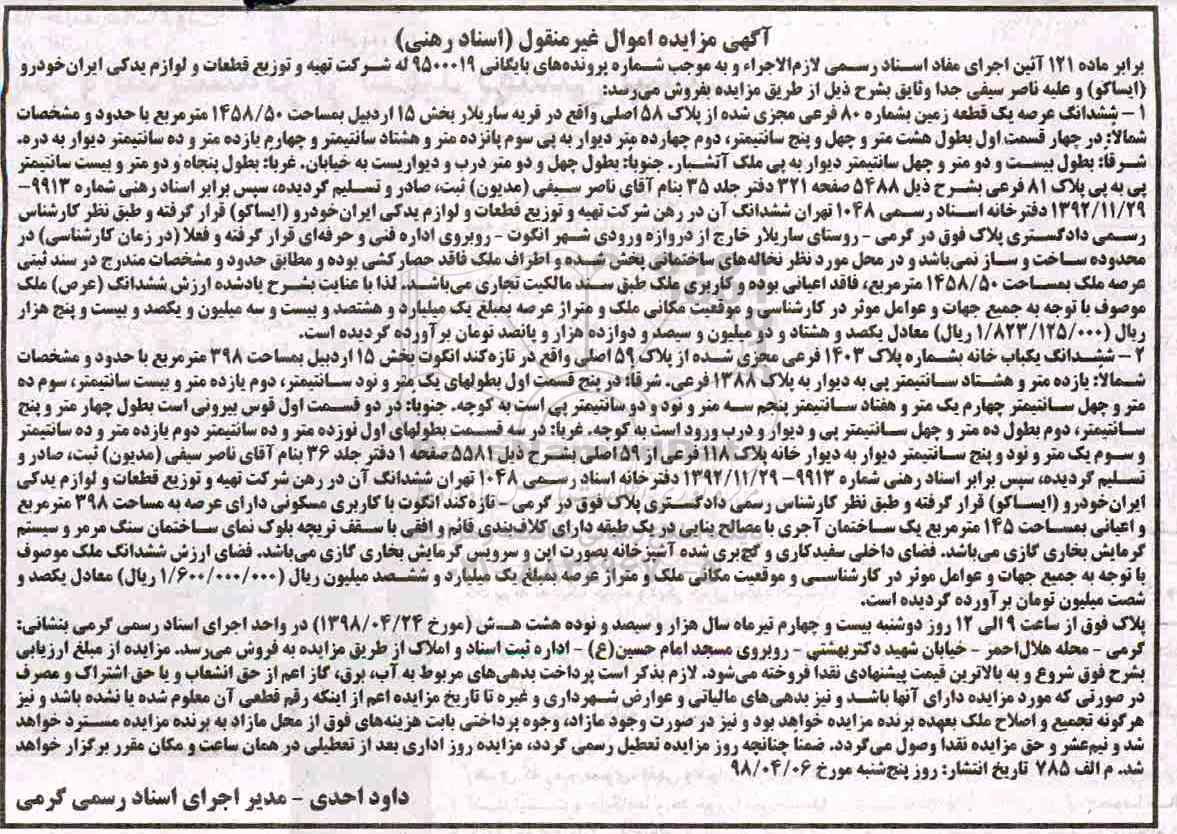 آگهی مزایده اموال غیرمنقول (اسناد رهنی)
برابر ماده ۱۲۱ آئین اجرای مفاد اسناد رسمی لازم‌الاجراء و به موجب شماره پرونده‌های بایگانی ۹۵۰۰۰۱۹ له شرکت تهیه و توزیع قطعات و لوازم یدکی ایران‌خودرو
(ایساکو) و علیه ناصر سیفی جدا وثایق بشرح ذیل از طریق مزایده بفروش می‌رسد:
۱ – ششدانگ عرصه یک قطعه زمین بشماره ۸۰ فرعی مجزی شده از پلاک ۵۸ اصلی واقع در قریه ساریلار بخش ۱۵ اردبیل بمساحت ۱۴۵۸/۵۰ مترمربع با حدود و مشخصات
شمالا: در چهار قسمت اول بطول هشت متر و چهل و پنج سانتیمتر، دوم چهارده متر دیوار به پی سوم پانزده متر و هشتاد سانتیمتر و چهارم یازده متر و ده سانتیمتر دیوار به دره.
شرقا: بطول بیست و دو متر و چهل سانتیمتر دیوار به پی ملک آتشبار. جنوبا: بطول چهل و دو متر درب و دیواریست به خیابان. غربا: بطول پنجاه و دو متر و بیست سانتیمتر
پی به پی پلاک ۸۱ فرعی بشرح ذیل ۵۴۸۸ صفحه ۳۲۱ دفتر جلد ۳۵ بنام آقای ناصر سیفی (مدیون) ثبت، صادر و تسلیم گردیده، سپس برابر اسناد رهنی شماره ۹۹۱۳–
۱۳۹۲/۱۱/۲۹ دفترخانه اسناد رسمی ۱۰۴۸ تهران ششدانگ آن در رهن شرکت تهیه و توزیع قطعات و لوازم یدکی ایران‌خودرو (ایساکو) قرار گرفته و طبق نظر کارشناس
رسمی دادگستری پلاک فوق در گرمی – روستای ساریلار خارج از دروازه ورودی شهر انگوت – روبروی اداره فنی و حرفه‌ای قرار گرفته و فعلا (در زمان کارشناسی) در
محدوده ساخت و ساز نمی‌باشد و در محل مورد نظر نخاله‌های ساختمانی پخش شده و اطراف ملک فاقد حصارکشی بوده و مطابق حدود و مشخصات مندرج در سند ثبتی
عرصه ملک بمساحت ۱۴۵۸/۵۰ مترمربع، فاقد اعیانی بوده و کاربری ملک طبق سند مالکیت تجاری می‌باشد. لذا با عنایت بشرح یادشده ارزش ششدانگ (عرص) ملک
موصوف با توجه به جمیع جهات و عوامل موثر در کارشناسی و موقعیت مکانی ملک و متراژ عرصه بمبلغ یک میلیارد و هشتصد و بیست و سه میلیون و یکصد و بیست و پنج هزار
ریال (۱/۸۲۳/۱۲۵/۰۰۰ ریال) معادل یکصد و هشتاد و دو میلیون و سیصد و دوازده هزار و پانصد تومان برآورده گردیده است.
۲ – ششدانگ یکباب خانه بشماره پلاک ۱۴۰۳ فرعی مجزی شده از پلاک ۵۹ اصلی واقع در تازه‌کند انگوت بخش ۱۵ اردبیل بمساحت ۳۹۸ مترمربع با حدود و مشخصات
شمالا: یازده متر و هشتاد سانتیمتر پی به دیوار به پلاک ۱۳۸۸ فرعی. شرقا: در پنج قسمت اول بطولهای یک متر و نود سانتیمتر، دوم یازده متر و بیست سانتیمتر، سوم ده
متر و چهل سانتیمتر چهارم یک متر و هفتاد سانتیمتر پنجم سه متر و نود و دو سانتیمتر پی است به کوچه. جنوبا: در دو قسمت اول قوس بیرونی است بطول چهار متر و پنج
سانتیمتر، دوم بطول ده متر و چهل سانتیمتر پی و دیوار و درب ورود است به کوچه. غربا: در سه قسمت بطولهای اول نوزده متر و ده سانتیمتر دوم یازده متر و ده سانتیمتر
و سوم یک متر و نود و پنج سانتیمتر دیوار به دیوار خانه پلاک ۱۱۸ فرعی از ۱۵۹صلی بشرح ذیل ۵۵۸۱ صفحه ۱ دفتر جلد ۳۶ بنام آقای ناصر سیفی (مدیون) ثبت، صادر و
تسلیم گردیده، سپس برابر اسناد رهنی شماره ۹۹۱۳– ۱۳۹۲/۱۱/۲۹ دفترخانه اسناد رسمی ۱۰۴۸ تهران ششدانگ آن در رهن شرکت تهیه و توزیع قطعات و لوازم یدکی
ایران‌خودرو (ایساکو) قرار گرفته و طبق نظر کارشناس رسمی دادگستری پلاک فوق در گرمی – تازه‌کند انگوت با کاربری مسکونی دارای عرصه به مساحت ۳۹۸ مترمربع
و اعیانی بمساحت ۱۴۵ مترمربع یک ساختمان آجری با مصالح بنایی در یک طبقه دارای کلاف‌بندی قائم و افقی با سقف تریچه بلوک نمای ساختمان سنگ مرمر و سیستم
گرمایش بخاری گازی می‌باشد. فضای داخلی سفیدکاری و گچ‌بری شده آشپزخانه بصورت اپن و سرویس گرمایش بخاری گازی می‌باشد. فضای ارزش ششدانگ ملک موصوف
با توجه به جمیع جهات و عوامل موثر در کارشناسی و موقعیت مکانی ملک و متراژ عرصه بمبلغ یک میلیارد و ششصد میلیون ریال (۱/۶۰۰/۰۰۰/۰۰۰ ریال) معادل یکصد و
شصت میلیون تومان برآورده گردیده است.
پلاک فوق از ساعت ۹ الی ۱۲ روز دوشنبه بیست و چهارم تیرماه سال هزار و سیصد و نوده هشت هـ.ش (مورخ ۱۳۹۸/۰۴/۲۴) در واحد اجرای اسناد رسمی گرمی بنشانی:
گرمی – محله هلال‌احمر – خیابان شهید دکتربهشتی – روبروی مسجد امام حسین(ع) – اداره ثبت اسناد و املاک از طریق مزایده به فروش می‌رسد. مزایده از مبلغ ارزیابی
بشرح فوق شروع و به بالاترین قیمت پیشنهادی نقدا فروخته می‌شود. لازم بذکر است پرداخت بدهی‌های مربوط به آب، برق، گاز اعم از حق انشعاب و یا حق اشتراک و مصرف
در صورتی که مورد مزایده دارای آنها باشد و نیز بدهی‌های مالیاتی و عوارض شهرداری و غیره تا تاریخ مزایده اعم از اینکه رقم قطعی آن معلوم شده یا نشده باشد و نیز
هرگونه تجمیع و اصلاح ملک بعهده برنده مزایده خواهد بود و نیز در صورت وجود مازاد، وجوه پرداختی بابت هزینه‌های فوق از محل مازاد به برنده مزایده مسترد خواهد
شد و نیم‌عشر و حق مزایده نقدا وصول می‌گردد. ضمنا چنانچه روز مزایده تعطیل رسمی گردد، مزایده روز اداری بعد از تعطیلی در همان ساعت و مکان مقرر برگزار خواهد
شد. م الف ۷۸۵ تاریخ انتشار: روز پنج‌شنبه مورخ ۹۸/۰۴/۰۶
داود احدی – مدیر اجرای اسناد رسمی گرمی